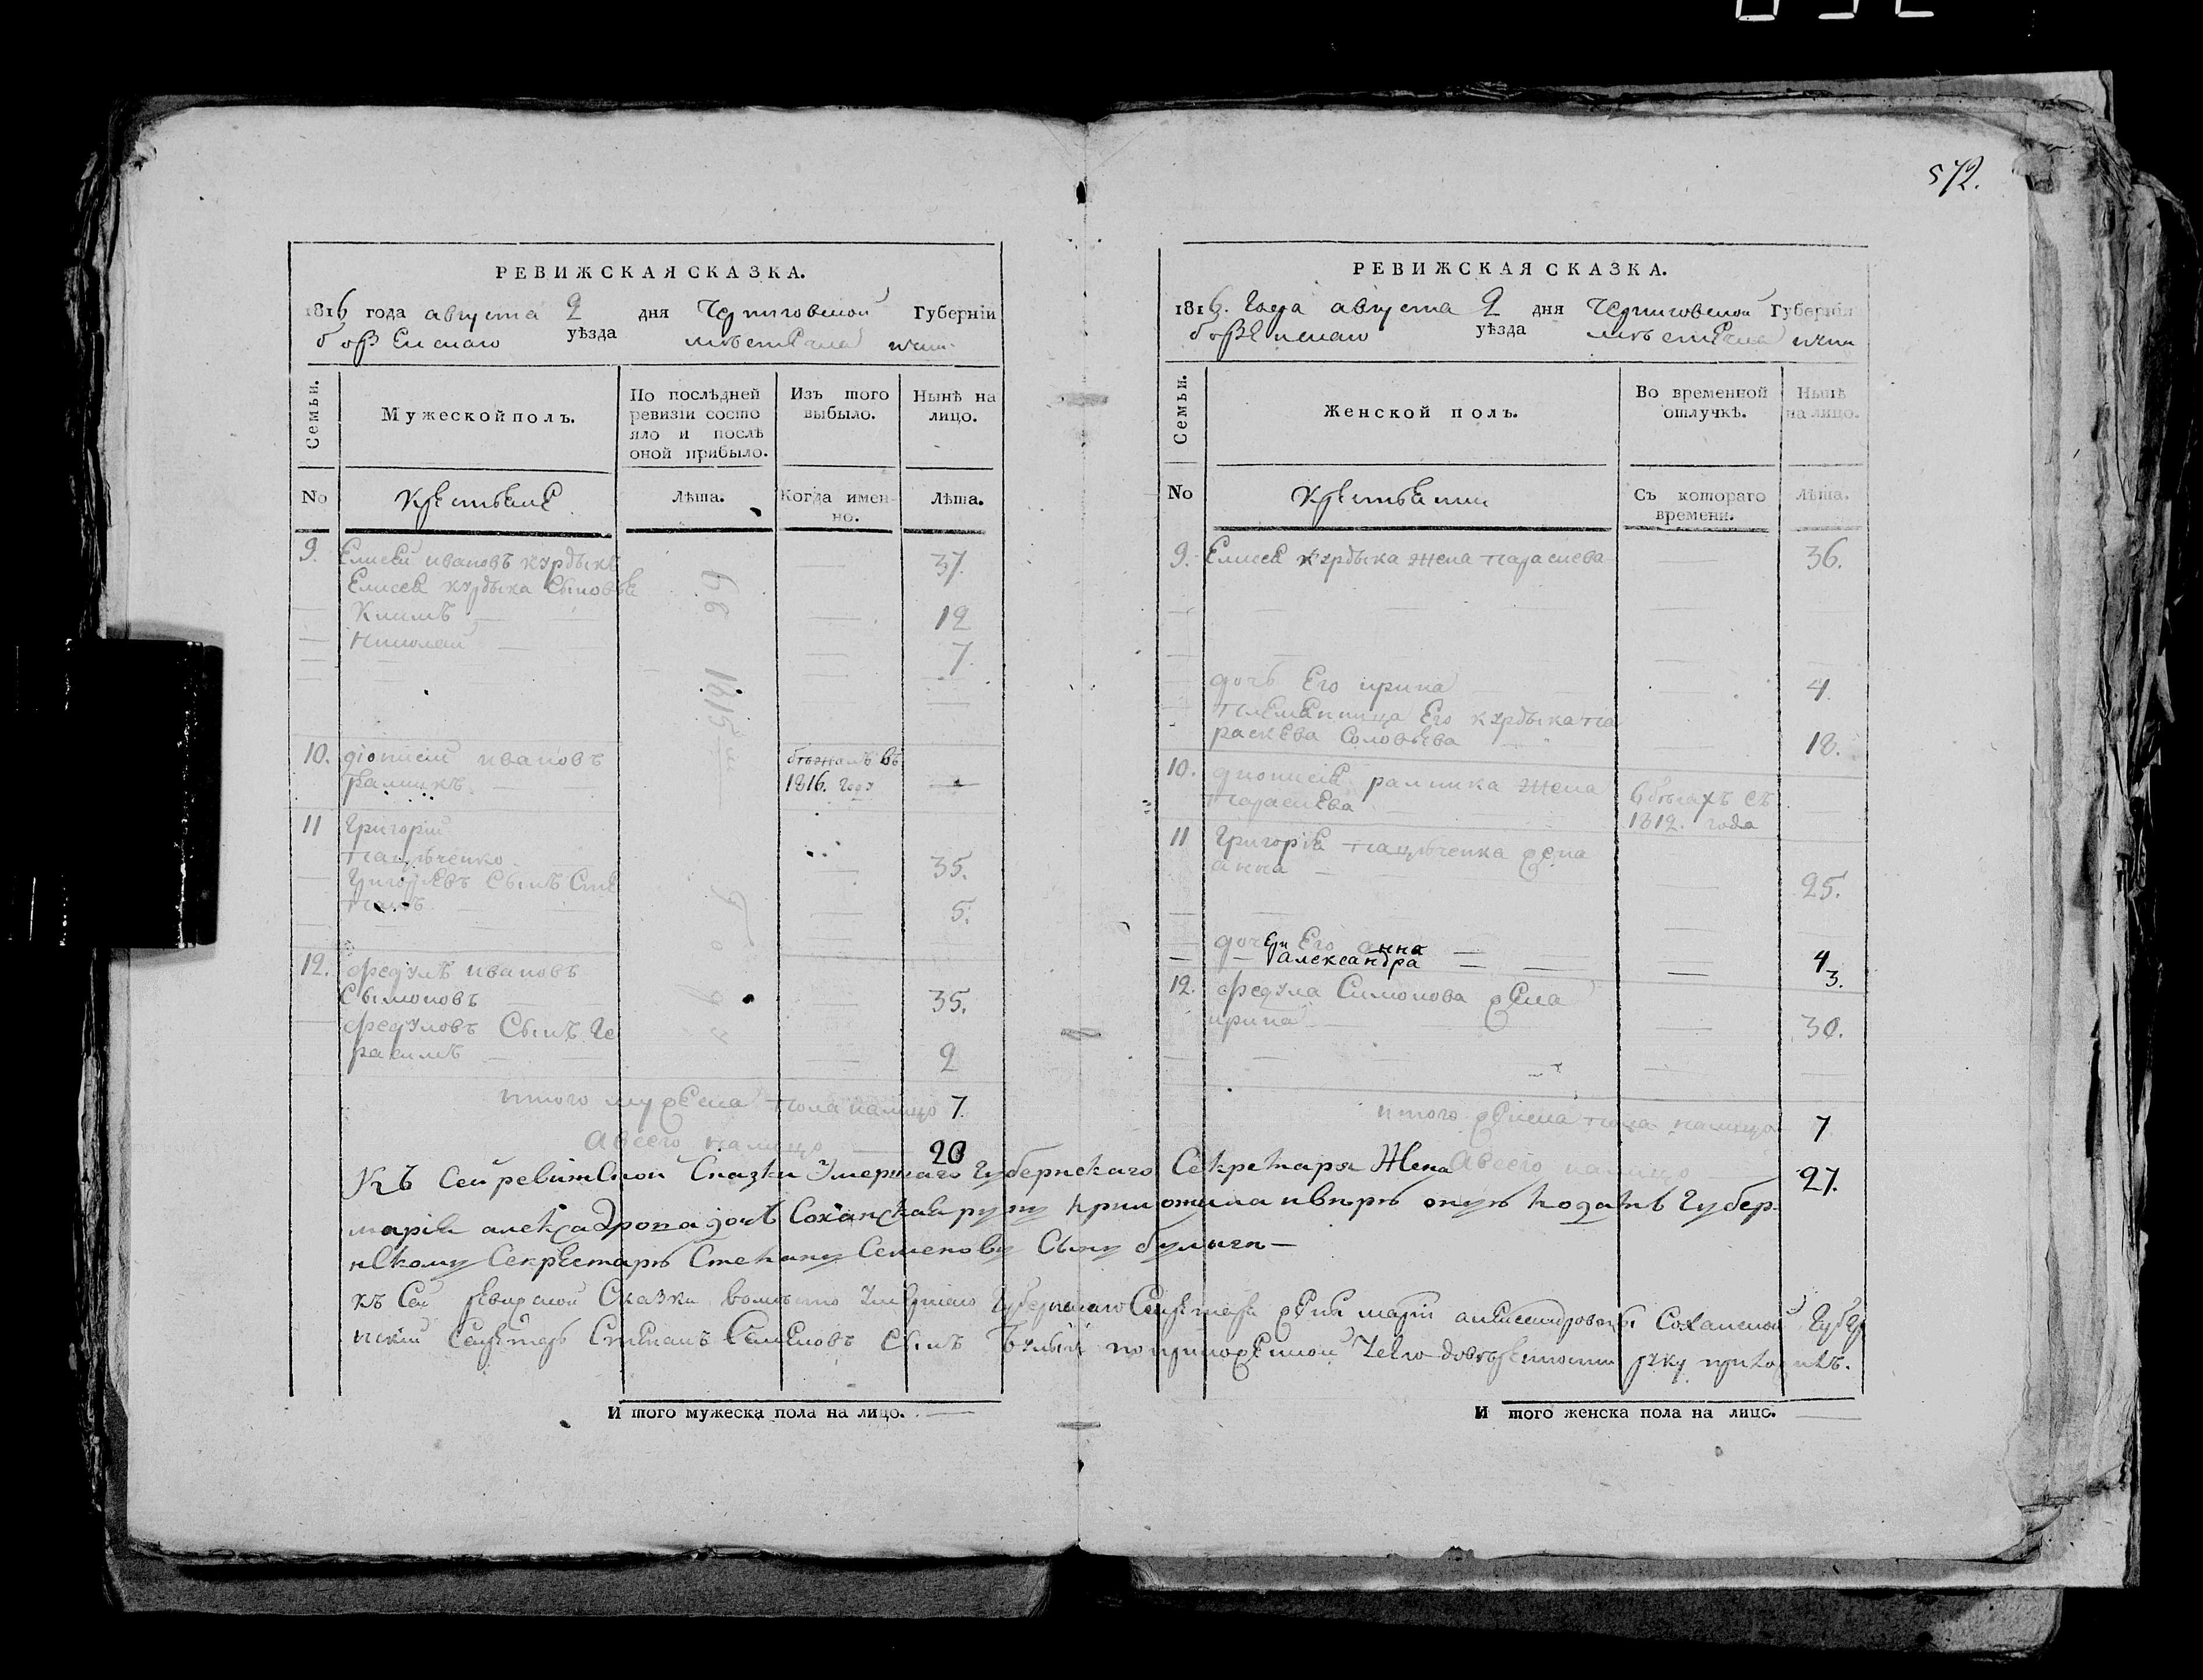 572.
РЕВИЖСКАЯ СКАЗКА.
1816 года августа 2 дня Черниговской Губерніи
борзенскаго уѣзда мѣстечка ични
Семьи.
Мужеской полъ.
По послѣдней ревизіи состояло и послѣ оной прибыло.
Изъ того выбыло.
Нынѣ на лицо.
No
Крестьяне
Лѣта.
Когда именно.
Лѣта.
9. Елисей ивановъ курдыка 37.
Елисея курдыка Сыновья
Климъ 12
Николай 7.
10. діонисій ивановъ бѣжалъ въ
рамикъ 1816. году
11 Григорій
пацѣченко 35.
Григорьевъ Сынъ Сте
панъ 5.
12. федулъ ивановъ
Сымоновъ 35.
федуловъ Сынъ Ге
расимъ 2
итого мужеска пола налицо 7
Авсего налицо 20
РЕВИЖСКАЯ СКАЗКА.
1816. Года августа 2 дня Черниговской Губерніи
борзенскаго уѣзда мѣстечка ични
Семьи.
Женской полъ.
Во временной отлучкѣ.
Нынѣ на лицо.
No
Крестьянки
Съ котораго времени.
Лѣта.
9. Елисея курдыка жена параскева 36.
дочь Его ирина 4.
племенница Его курдыка па
раскева Соловьева 18.
10. дионисія рамика жена вбѣгахъ съ
параскева 1812. года
11 Григорія пацѣченка жена
анна 25.
дочери Его анна 4
александра 3.
12. федула Симонова жена
ирина 30.
итого женска пола налицо 7
Авсего налицо 27.
Къ Сей ревижской Сказки Умершаго Губернскаго Секретаря Жена
марія александрова дочь Соханская руку приложила ивѣрѣ оную подать Губер
нскому Секретарю Степану Семенову Сыну
къ Сей ревижской Сказки вомѣсто Умершаго Губернскаго Секретаря жени маріи александровой Соханской Губер
нскій Секретарь Степанъ Семеновъ Сынъ руку приложилъ.
И того мужеска пола на лицо.
И того женска пола на лицо.